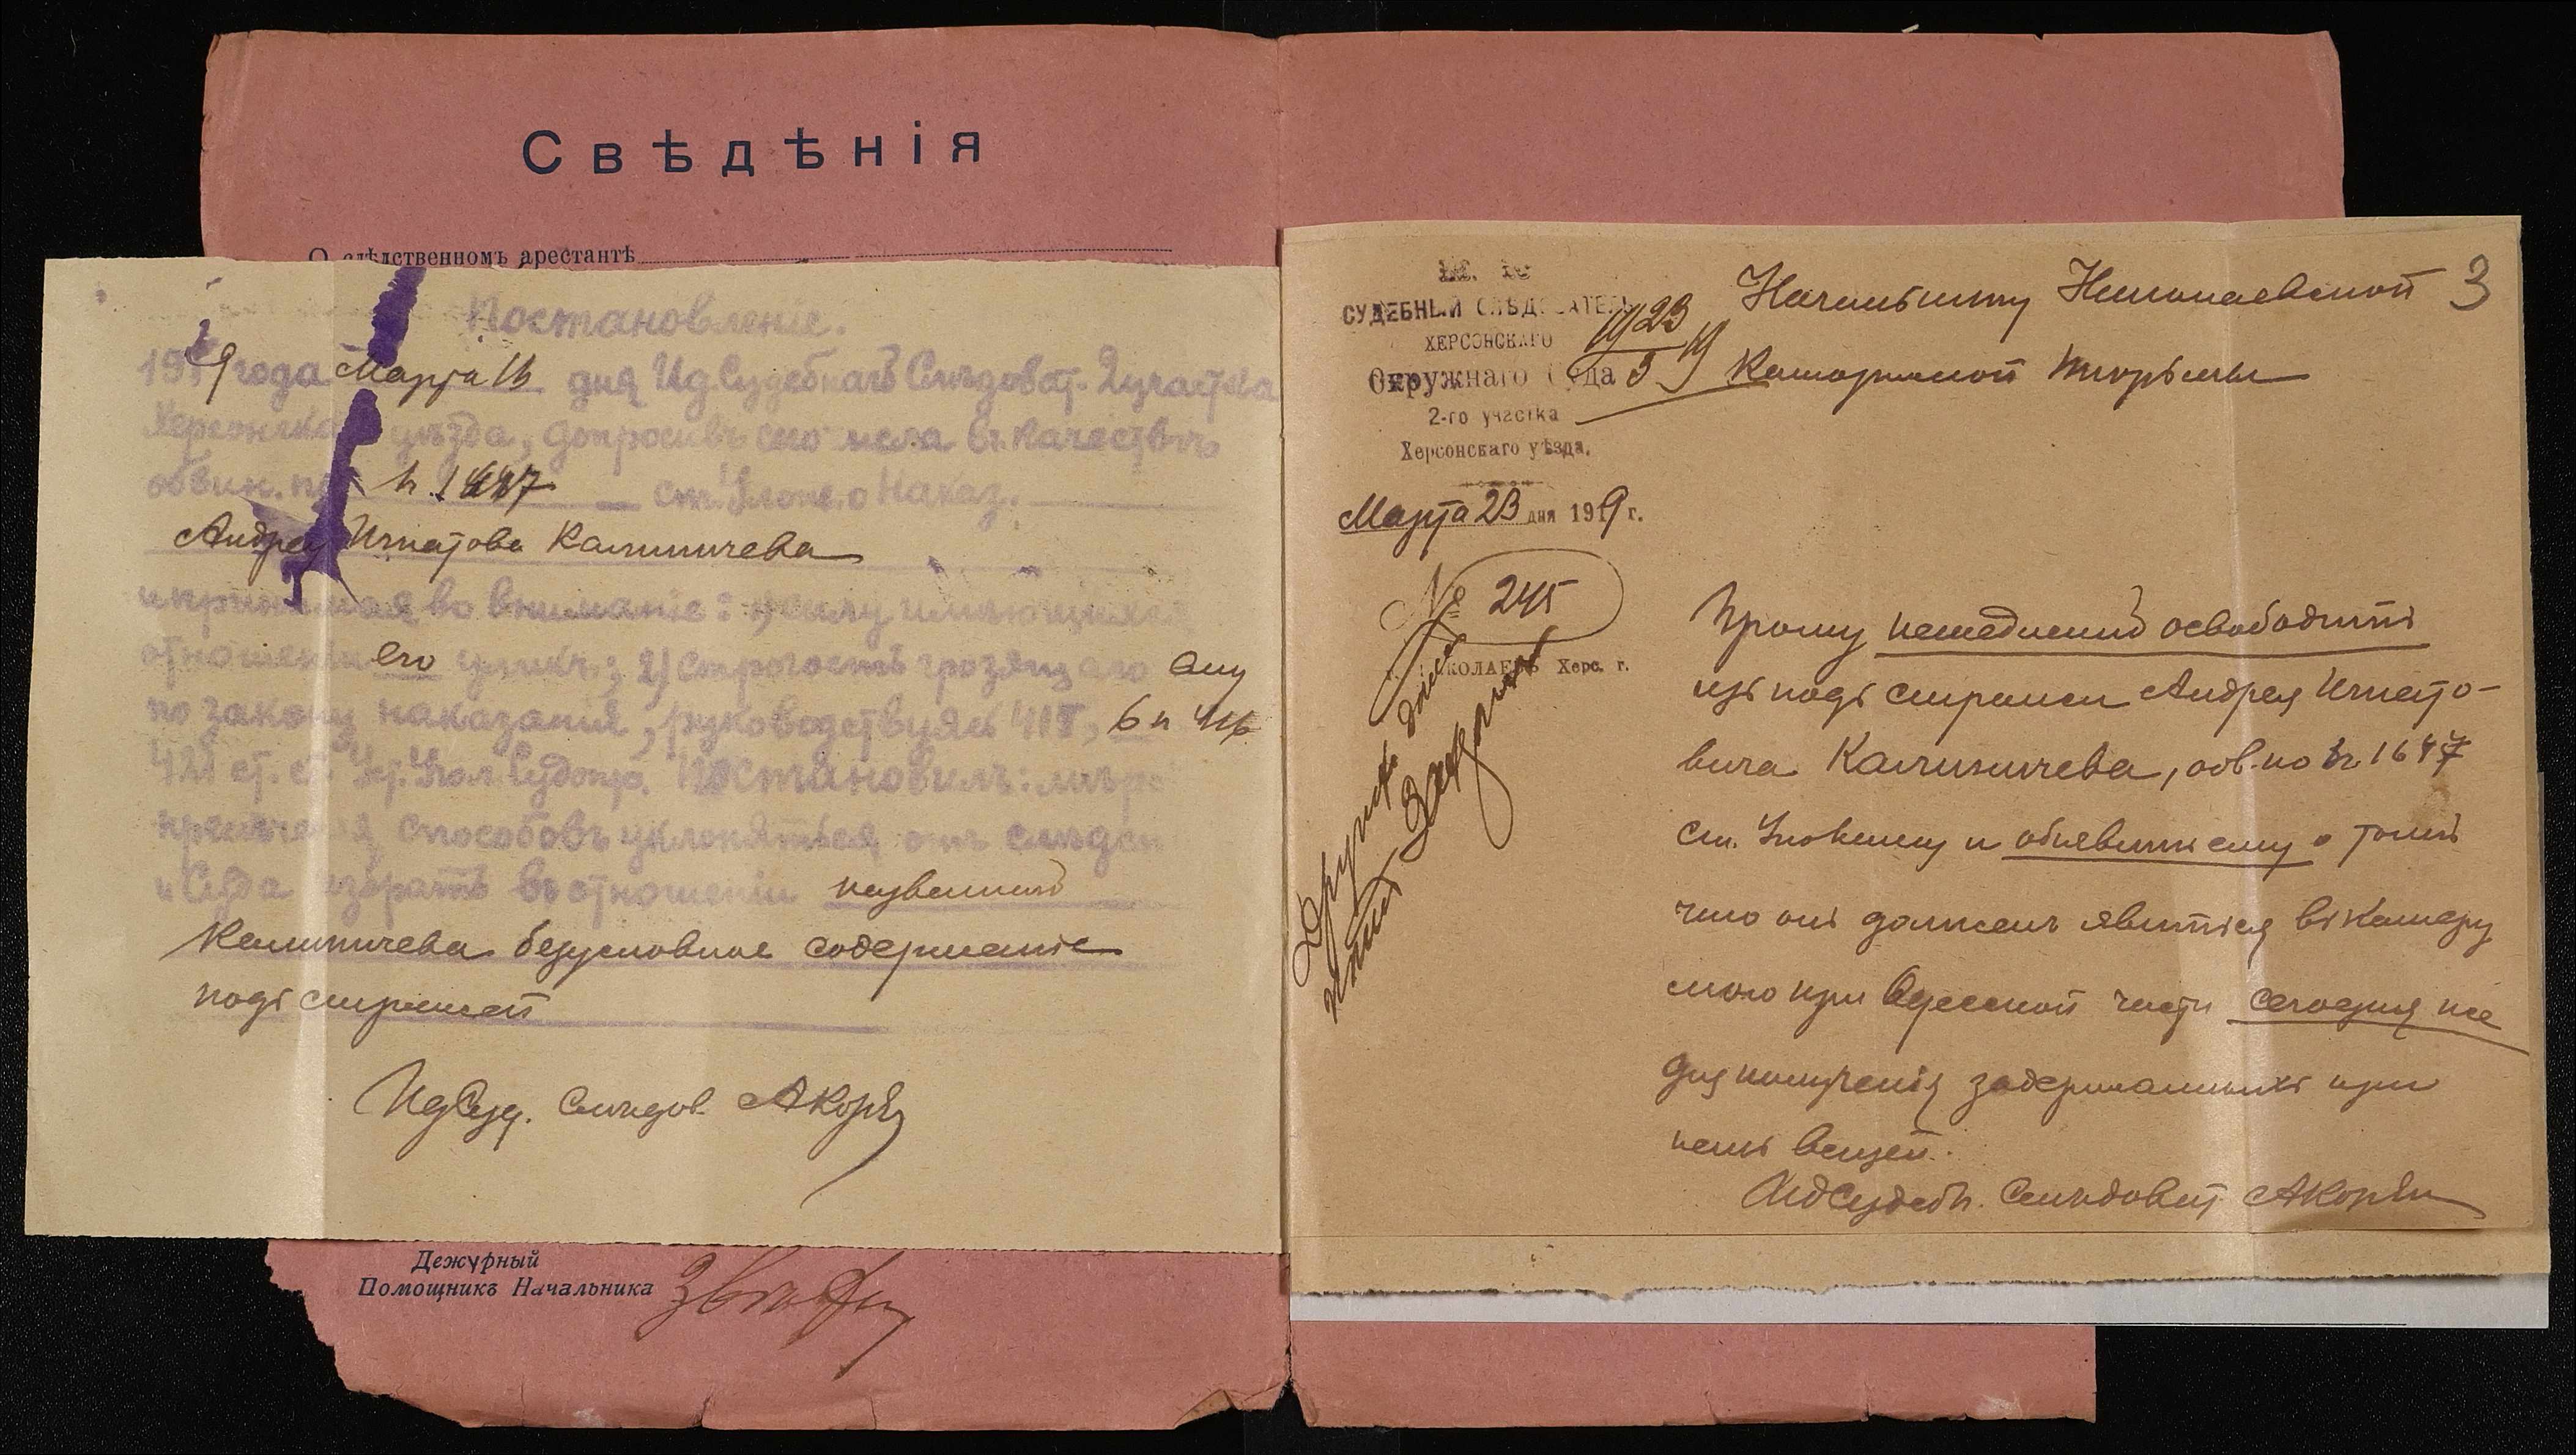 Свѣдѣнія
О слѣдственномъ арестантѣ
Постановленіе.
1919 года Марта 16 дня Ид. Судебнаго Слѣдоват. 2 участка
Херсонска уѣзда, допросивъ сего числа въ качествѣ
обвин. по 1647 ст. Улож. о Наказ.
Андрея Игнатова Калиничева
и принимая во вниманіе: 1) силу имѣющихся
отношеніи его уликъ; 2) строгость грозящаго ему
по закону наказанія, руководствуясь 416, 6 п 416
421 ст. ст. Уст. Угол. Судопр. Постановилъ: мѣрою
пресѣченія способовъ уклоняться отъ слѣдст
и Суда избрать въ отношеніи названнаго
Калиничева безусловное содержаніе
подъ стражей
Ид Суд. Слѣдов.
Дежурный
Помощникъ Начальника
3
СУДЕБНЫЙ СЛѢДОВАТЕЛЬ
ХЕРСОНСКАГО
Окружнаго Суда
2-го участка
Херсонскаго уѣзда.
Марта 23 дня 1919 г.
№ 245
НИКОЛАЕВЪ Херс. г.
Начальнику Николаевской
Каторжной тюрьмы
Прошу немедленно освободить
изъ подъ стражи Андрея Игнато-
вича Калиничева, обв. по 1647
ст. Уложенія и объявить ему о томъ
что онъ долженъ явиться въ камеру
мою при Одесской части сегодня же
для полученія задержанныхъ при
немъ вещей.
Ид Судебн. Слѣдоват.